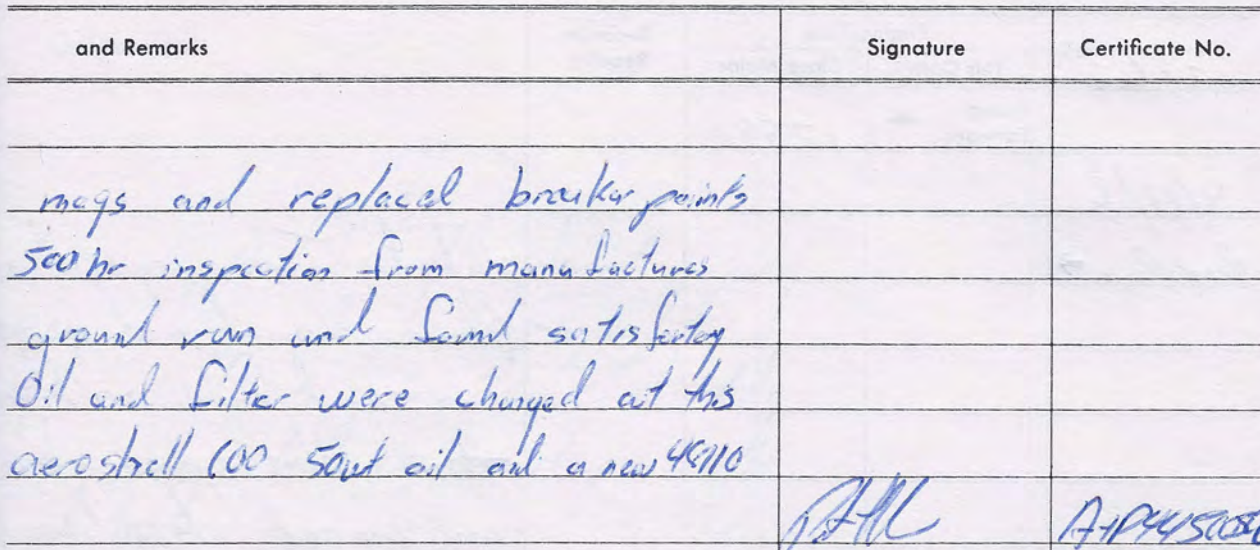 and Remarks Signature Certificate No.
mags and replaced breaker points
500 hr inspection from manufactures
ground run and found satisfactory
Oil and filter were changed at this
aeroshell 100 50wt oil and a new 48110